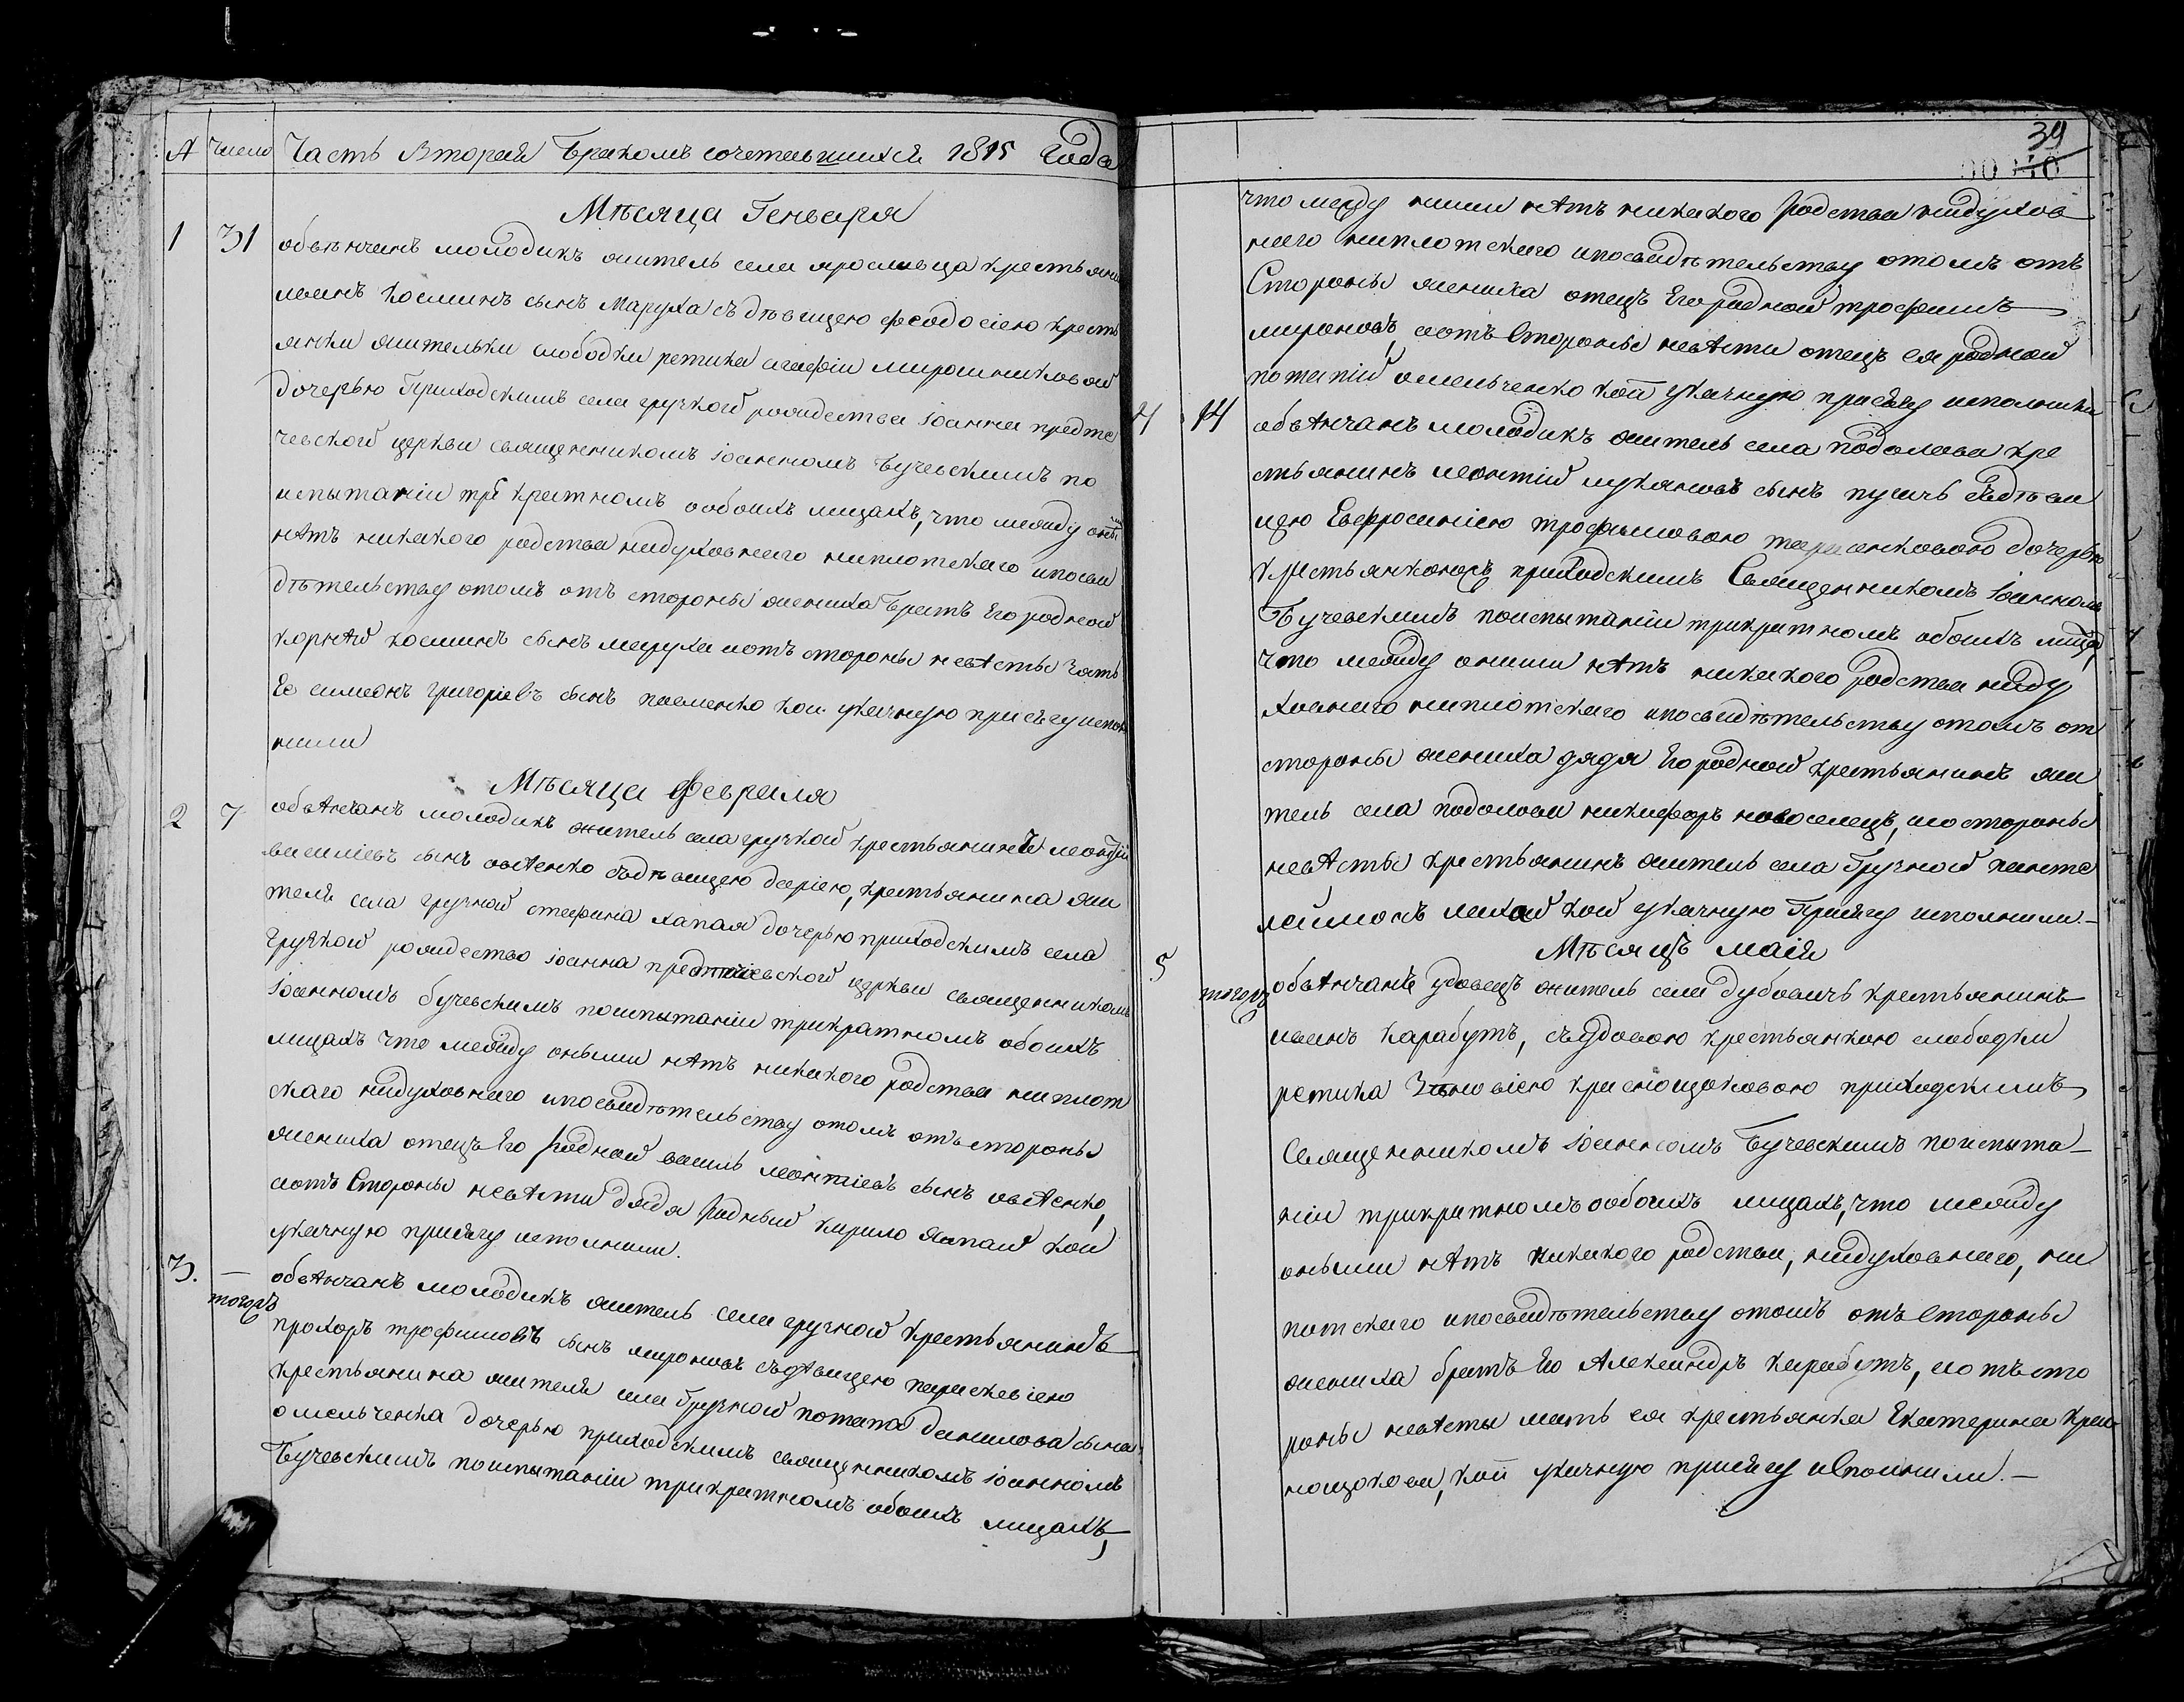 № Число Часть Вторая Бракомъ сочетавшихся 1815 Года
Мѣсяца Генваря
1 31 обвѣнчанъ молодикъ житель села ярославца крестьянинъ
иванъ Косминъ сынъ Маруха съ дѣвицею феодосіею кресть
янки жительки слободки ретика агафіи мирошниковой
дочерью Приходскимъ села гручкой рождества іоанна предте
чевской церкви священникомъ іоанномъ Бучевскимъ по
испытаніи трикратномъ ообоихъ лицахъ, что между оными
нѣтъ никакого родства нидуховнаго ниплотскаго ипосви
дѣтельству отомъ отъ стороны жениха Братъ Его родной
корнѣй косминъ сынъ маруха иотъ стороны невѣсты зять
Ее симеонъ григоріевъ сынъ павленко кои указную присягу испол
нили
Мѣсяца Февраля
2 7 обвѣнчанъ молодикъ житель села гручкой крестьянинъ леонтій
василіевъ сынъ овсѣенко съдѣвицею даріею, крестьянина жи
теля села гручкой стефана хапая дочерью приходскимъ села
Гручкой рождество іоанна предтечевской церкви священникомъ
іоанномъ бучевскимъ поиспытаніи трикратномъ обоихъ
лицахъ что между оными нѣтъ никакого родства ниплот
скаго нидуховнаго ипосвидѣтельству отомъ отъ стороны
жениха отецъ Его родной василь леонтіевъ сынъ овсѣенко,
иотъ Стороны невѣсти дядя родный кирило хапай кои
указную присягу исполнили.
3. — тогожъ обвѣнчанъ молодикъ житель села гручкой крестьянинъ
прохоръ трофимовъ сынъ мироновъ съдѣвицею параскевіею
крестьянина жителя села Гручкой потапа данилова сына
омельченка дочерью приходскимъ священникомъ іоанномъ
Бучевскимъ поиспытаніи трикратномъ обоихъ лицахъ,
39
что между ними нѣтъ никакого родства нидухов
наго ниплотскаго ипосвидѣтельству отомъ отъ
Стороны жениха отецъ Его родной трофимъ
мироновъ, иотъ Стороны невѣсти отецъ ея родной
потапій омельченко кои указную присягу исполнили
4 14 обвѣнчанъ молодикъ житель села подолова кре
стьянинъ леонтій лукяновъ сынъ съдѣви
цею Евфросиніею трофымовою тарасенковою дочерью
крестьянкоюжъ приходскимъ Священникомъ іоанномъ
Бучевскимъ поиспытаніи трикратномъ обоихъ лицах,
что между оними нѣтъ никакого родства ниду
ховнаго ниплотскаго ипосвидѣтельству отомъ от
стороны жениха дядя Его родной крестьянинъ жи
тель села подолова никифоръ новоселецъ, ио стороны
невѣсты крестьянинъ житель села Гручкой панте
леймонъ кои указную Присягу исполнили.—
Мѣсяцъ маія
5 тогожъ обвѣнчанъ удовецъ житель села Дубовичъ крестьянинъ
иванъ карабутъ, съудовою крестьянкою слабодки
ретика Зѣновіею краснощоковою приходскимъ
Священникомъ іоанномъ Бучевскимъ поиспыта—
ніи трикратномъ ообоихъ лицахъ, что между
оными нѣтъ никакого родства, нидуховнаго, ни
плотскаго ипосвидѣтельству отомъ отъ Стороны
жениха братъ Его Александръ карабутъ, иотъ сто
роны невѣсты мать ея крестьянка Екатерина крас
нощокова, кои указную присягу исполнили.—